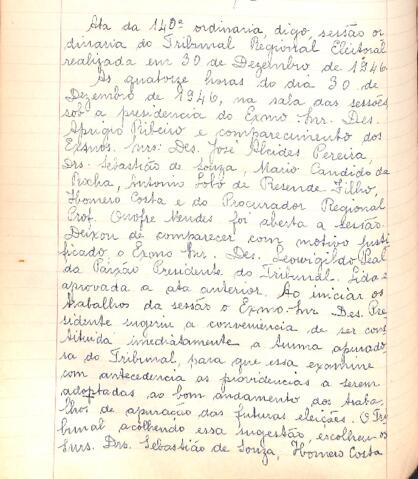 Ata da 140ª ordinaria, digo, sessão or
dinaria do Tribunal Regional Eleitoral
realizada em 30 de Dezembro de 1946
As quatorze horas do dia 30 de
Dezembro de 1946, na sala das sessões
sob a presidencia do Exmo. Snr. Des.
Aprigio Ribeiro e comparecimento dos
Exmos. Snrs: Des. José Alcides Pereira,
Drs. Sebastião de Souza, Mario Candido da
Rocha, Antonio Lobo de Resende Filho,
Homero Costa e do Procurador Regional
Prof. Onofre Mendes foi aberta a sessão.
Deixou de comparecer com motivo justi
ficado, o Exmo. Snr. Des. Leovigildo Leal
da Paixão Presidente do Tribunal. Lida e
aprovada a ata anterior. Ao iniciar os
trabalhos da sessão o Exmo. Snr. Des. Pre
sidente sugeriu a conveniência de ser cons
tituida imediatamente a turma apurado
ra do Tribunal, para que essa examine
com antecedencia as providencias a serem
adoptadas ao bom andamento dos traba
lhos de apuração das futuras eleições. O Tri
bunal acolhendo essa sugestão, escolheu os
Snrs. Drs. Sebastião de Souza, Homero Costa